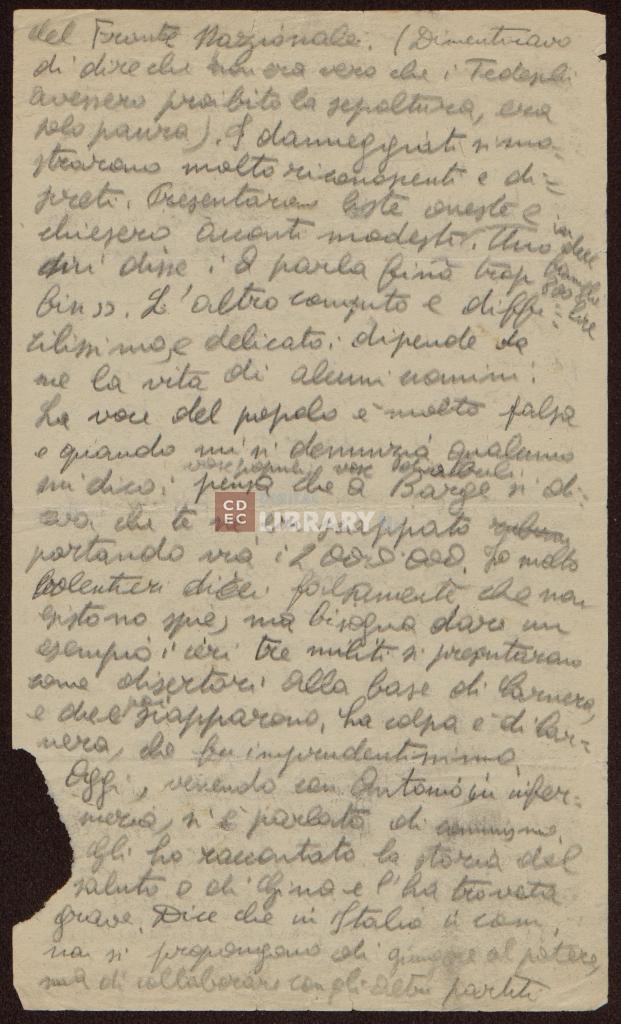 del Fronte Nazionale. (Dimenticavo
di dire che non era vero che i Tedeschi
avessero proibito la sepoltura, era
solo paura). I danneggiati si mo-
strarono molto riconoscenti e di-
screti. Presentarono liste oneste e
chiesero acconti modesti. Uno
mi disse: parla fino trop
bin». L'altro compito è diffi-
cilissimo, e delicato: dipende da
me la vita di alcuni uomini:
La voce del popolo è molto falsa
e quando mi si denunzia qualcuno
mi dico: pensa che a Barge si di-
ceva che te scappato
portando via i 2 000 000. Io molto
volentieri direi falsamente che non
esistono spie, ma bisogna dare un
esempio: ieri tre militi si presentarono
come disertori alla base di Carnera,
e due scapparono. La colpa è di Car-
nera, che fu imprudentissimo.
Oggi, venendo con Antonio in infer-
meria, si è parlato di comunismo.
Gli ho raccontato la storia del
saluto e di Gina e l'ha trovata
grave. Dice che in Italia i com.
non si propongono di giungere al potere,
ma di collaborare con gli altri partiti
CDEC LIBRARY